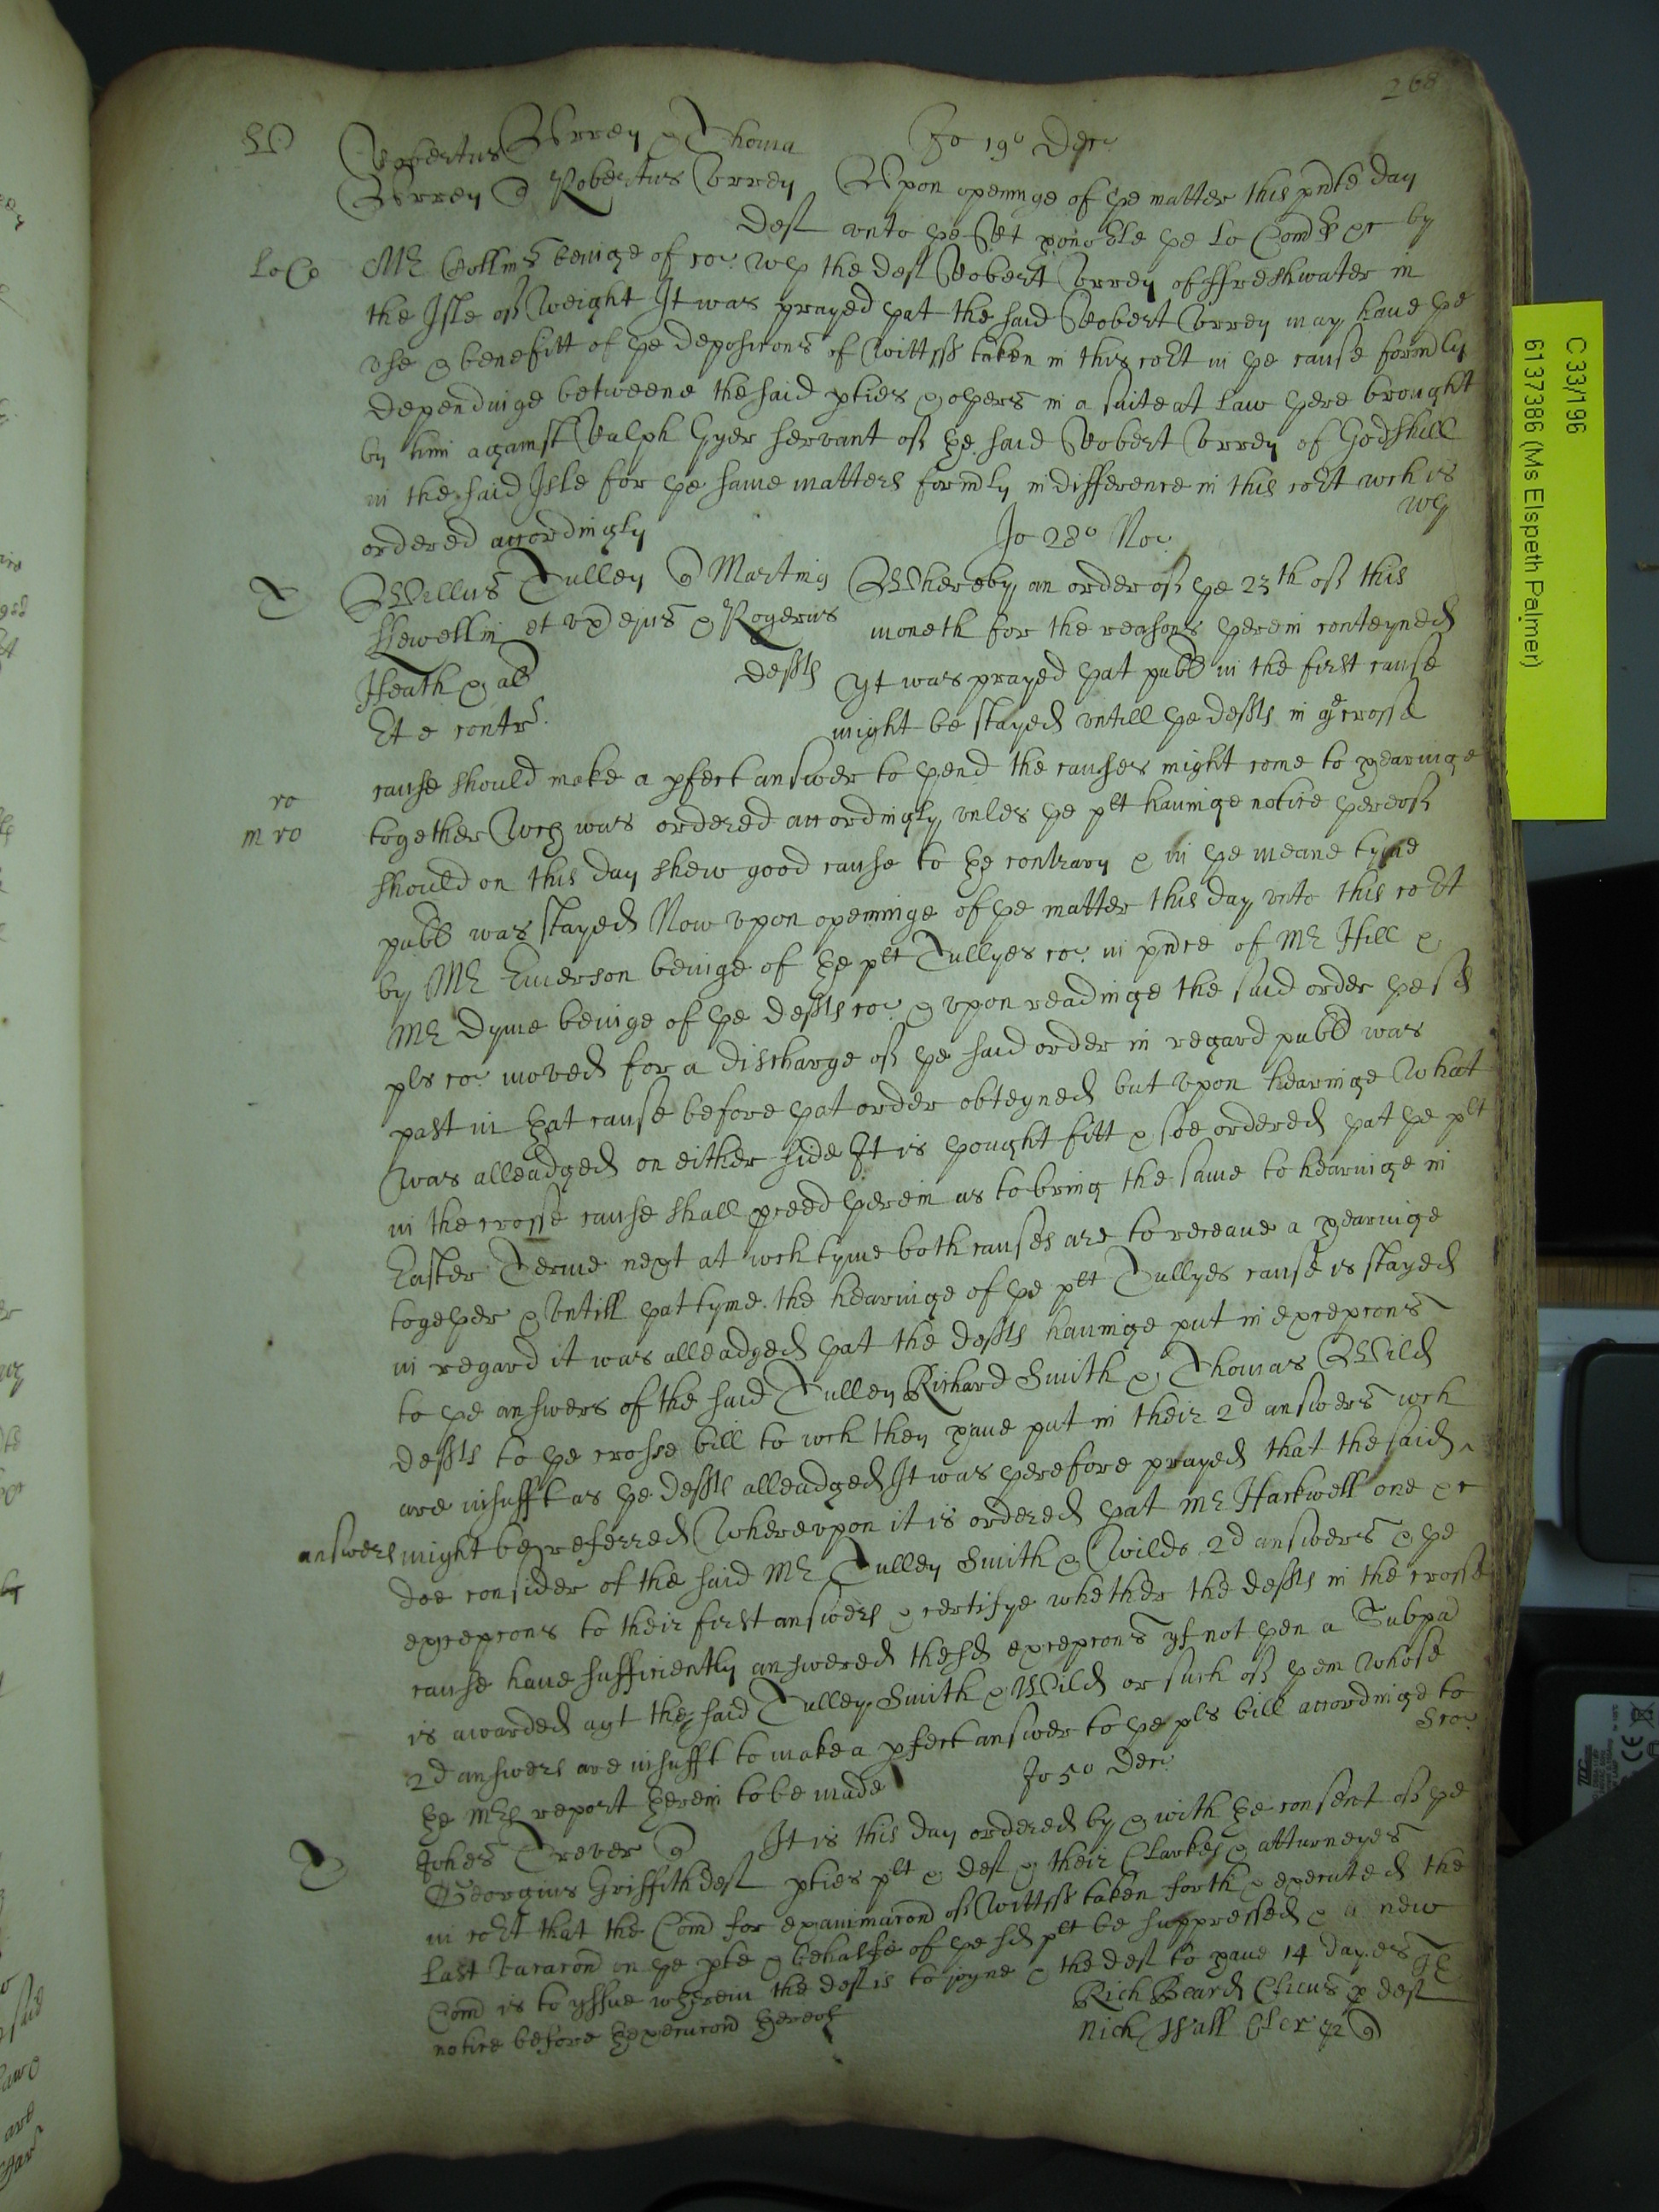 268
Jo 19o Dec
Robertus Urrey & Thoma
Urrey Robertus Urrey Upon openinge of the matter this pnte day
Deft unto the Ret honoble the Lo Comrs &c by
Lo Co Mr Collins beinge of co: wth the deft Robert Urrey of ffreshwater in
the Isle of Weight It was prayed that the said Robert Urrey may haue the
use & benefitt of the deposicons of Wittss taken in this cort in the cause formly
dependinge betweene the said pties & others in a suite at law there brought
by him against Ralph Gyer servant of the said Robert Urrey of Godshill
in the said Isle for the same matters formly in difference in this cort wch is
ordered accordingly wg
Jo 28o No:
T Willus Tulley Marting Whereby an order of the 23th of this
Llewellin et ux ejus & Rogerus moneth for the reasons therein conteyned
Heath & al defts Yt was prayed that publ in the first cause
Et e contr. might be stayed untill the defts in the crosse
cause should make a pfect answer to thend the causes might come to hearinge
ro
m ro together Wch was ordered accordingly unles the plt hauinge notice thereof
should on this day shew good cause to the contrary & in the meane tyme
publ was stayed Now upon openinge of the matter this day unto this cort
by Mr Emerson beinge of the plt Tullyes co: in pnce of Mr Hill &
Mr Dyme beinge of the defts co: & upon readinge the said order the sd
pls co: moved for a discharge of the said order in regard publ was
past in that cause before that order obteyned but upon hearinge what
was alleadged on either side It is thought fitt & soe ordered that the plt
in the crosse cause shall pceed therein as to bring the same to hearinge in
Easter Terme next at wch tyme both causes are to receaue a hearinge
together & Untill that tyme the hearinge of the plt Tullyes cause is stayed
in regard it was alleadged that the defts hauinge put in excepcons
to the answers of the said Tulley Richard Smith & Thomas Wild
defts to the crosse bill to wch they haue put in their 2d answers wch
are insufft as the defts alleadged It was therefore prayed that the said
answers might be referred Whereupon it is ordered that Mr Hartwell one &c
doe consider of the said Mr Tulley Smith & Wilds 2d answers & the
excepcons to their first answers & certifye whether the defts in the crosse
cause haue sufficiently answered the sd excepcons yf not then a Subpa
is awarded agt the said Tulley Smith & Wild or such of them whose
2d answers are insufft to make a pfect answer to the pls bill accordinge to
the Mrs report therein to be made
Jo 5o Dec
T Johes Trever It is this day ordered by & with the consent of the
Georgius Griffith deft pties plt & deft & their Clarkes & atturneyes
in cort that the Com for examinacon of Wittss taken forth & executed the
last Vacacon on the pte & behalfe of the sd plt be suppressed & a new
Com is to yssue wherein the deft is to joyne & the deft to haue 14 dayes
notice before thexecucon thereof Rich Beard Clicus p deft
Nich Wall Cler
C 33/196
6137386 (Ms Elspeth Palmer)